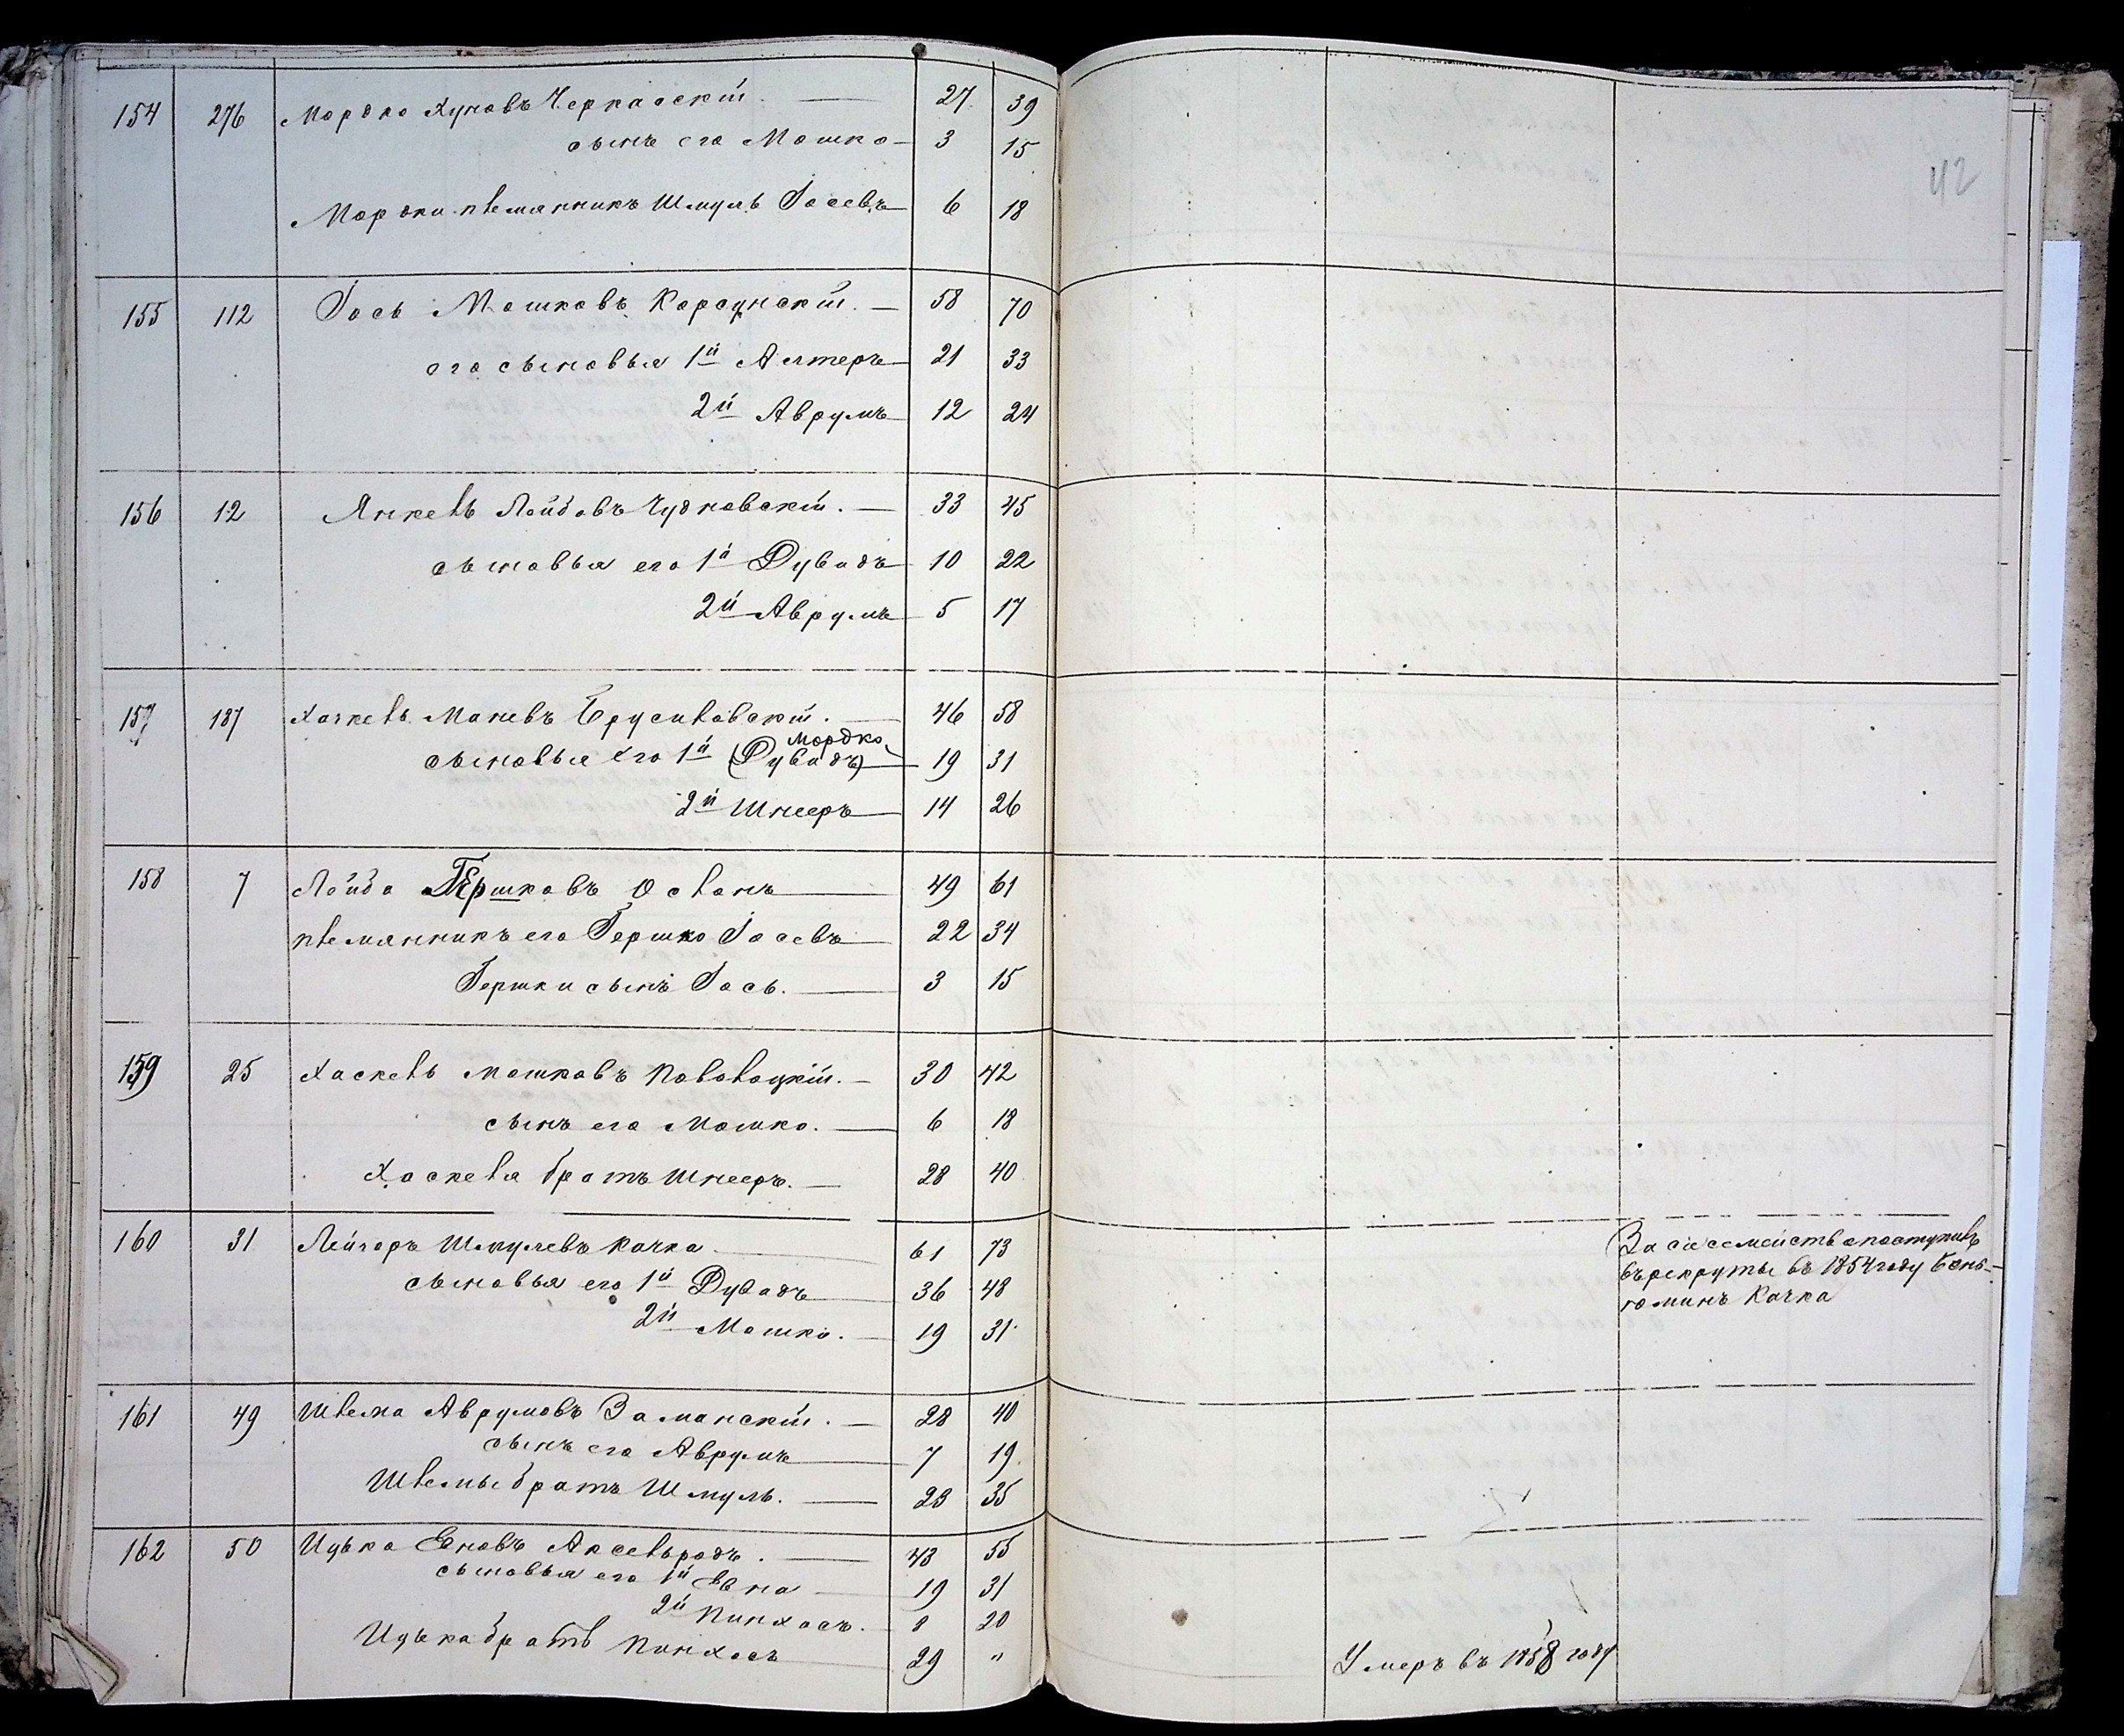 154 276 Мордко Хуновъ Черкаскій. 27 39
сынъ его Мошко 3 15
Мордки племянникъ Шмуль Іосевъ 6 18
42
155 112 Іось Мошковъ Корсунскій. 58 70
его сыновья 1й Алтеръ 21 33
2й Аврумъ 12 24
156 12 Янкель Лейбовъ Чудновскій. 33 45
сыновья его 1й Дувидъ 10 22
2й Аврумъ 5 17
157 187 Хацкель Маневъ Ерусилавскій. 46 58
Мордко
сыновья его 1й (Дувидъ) 19 31
2й Шнееръ 14 26
158 7 Лейба Гершковъ 49 61
племянникъ его Гершко Іосевъ 22 34
Гершки сынъ Іось. 3 15
159 25 Хаскель Мошковъ Половоцкій. 30 42
сынъ его Мошко. 6 18
Хаскеля братъ Шнееръ. 28 40
160 31 Лейзоръ Шмулевъ Качка 61 73
сыновья его 1й Дувадъ 36 48
2й Мошко. 19 31
За сіе семейство поступилъ
въ рекруты въ 1854 году Бень-
юминъ Качка
161 49 Шлема Аврумовъ Заманскій. 28 40
сынъ его Аврумъ 7 19
Шлемы братъ Шмуль. 23 35
162 50 Ицька Евновъ Аксельродъ. 43 55
сыновья его 1й Евна 19 31
2й Пинхосъ. 8 20
Ицька братъ Пинхосъ 29 "
Умеръ въ 1858 году